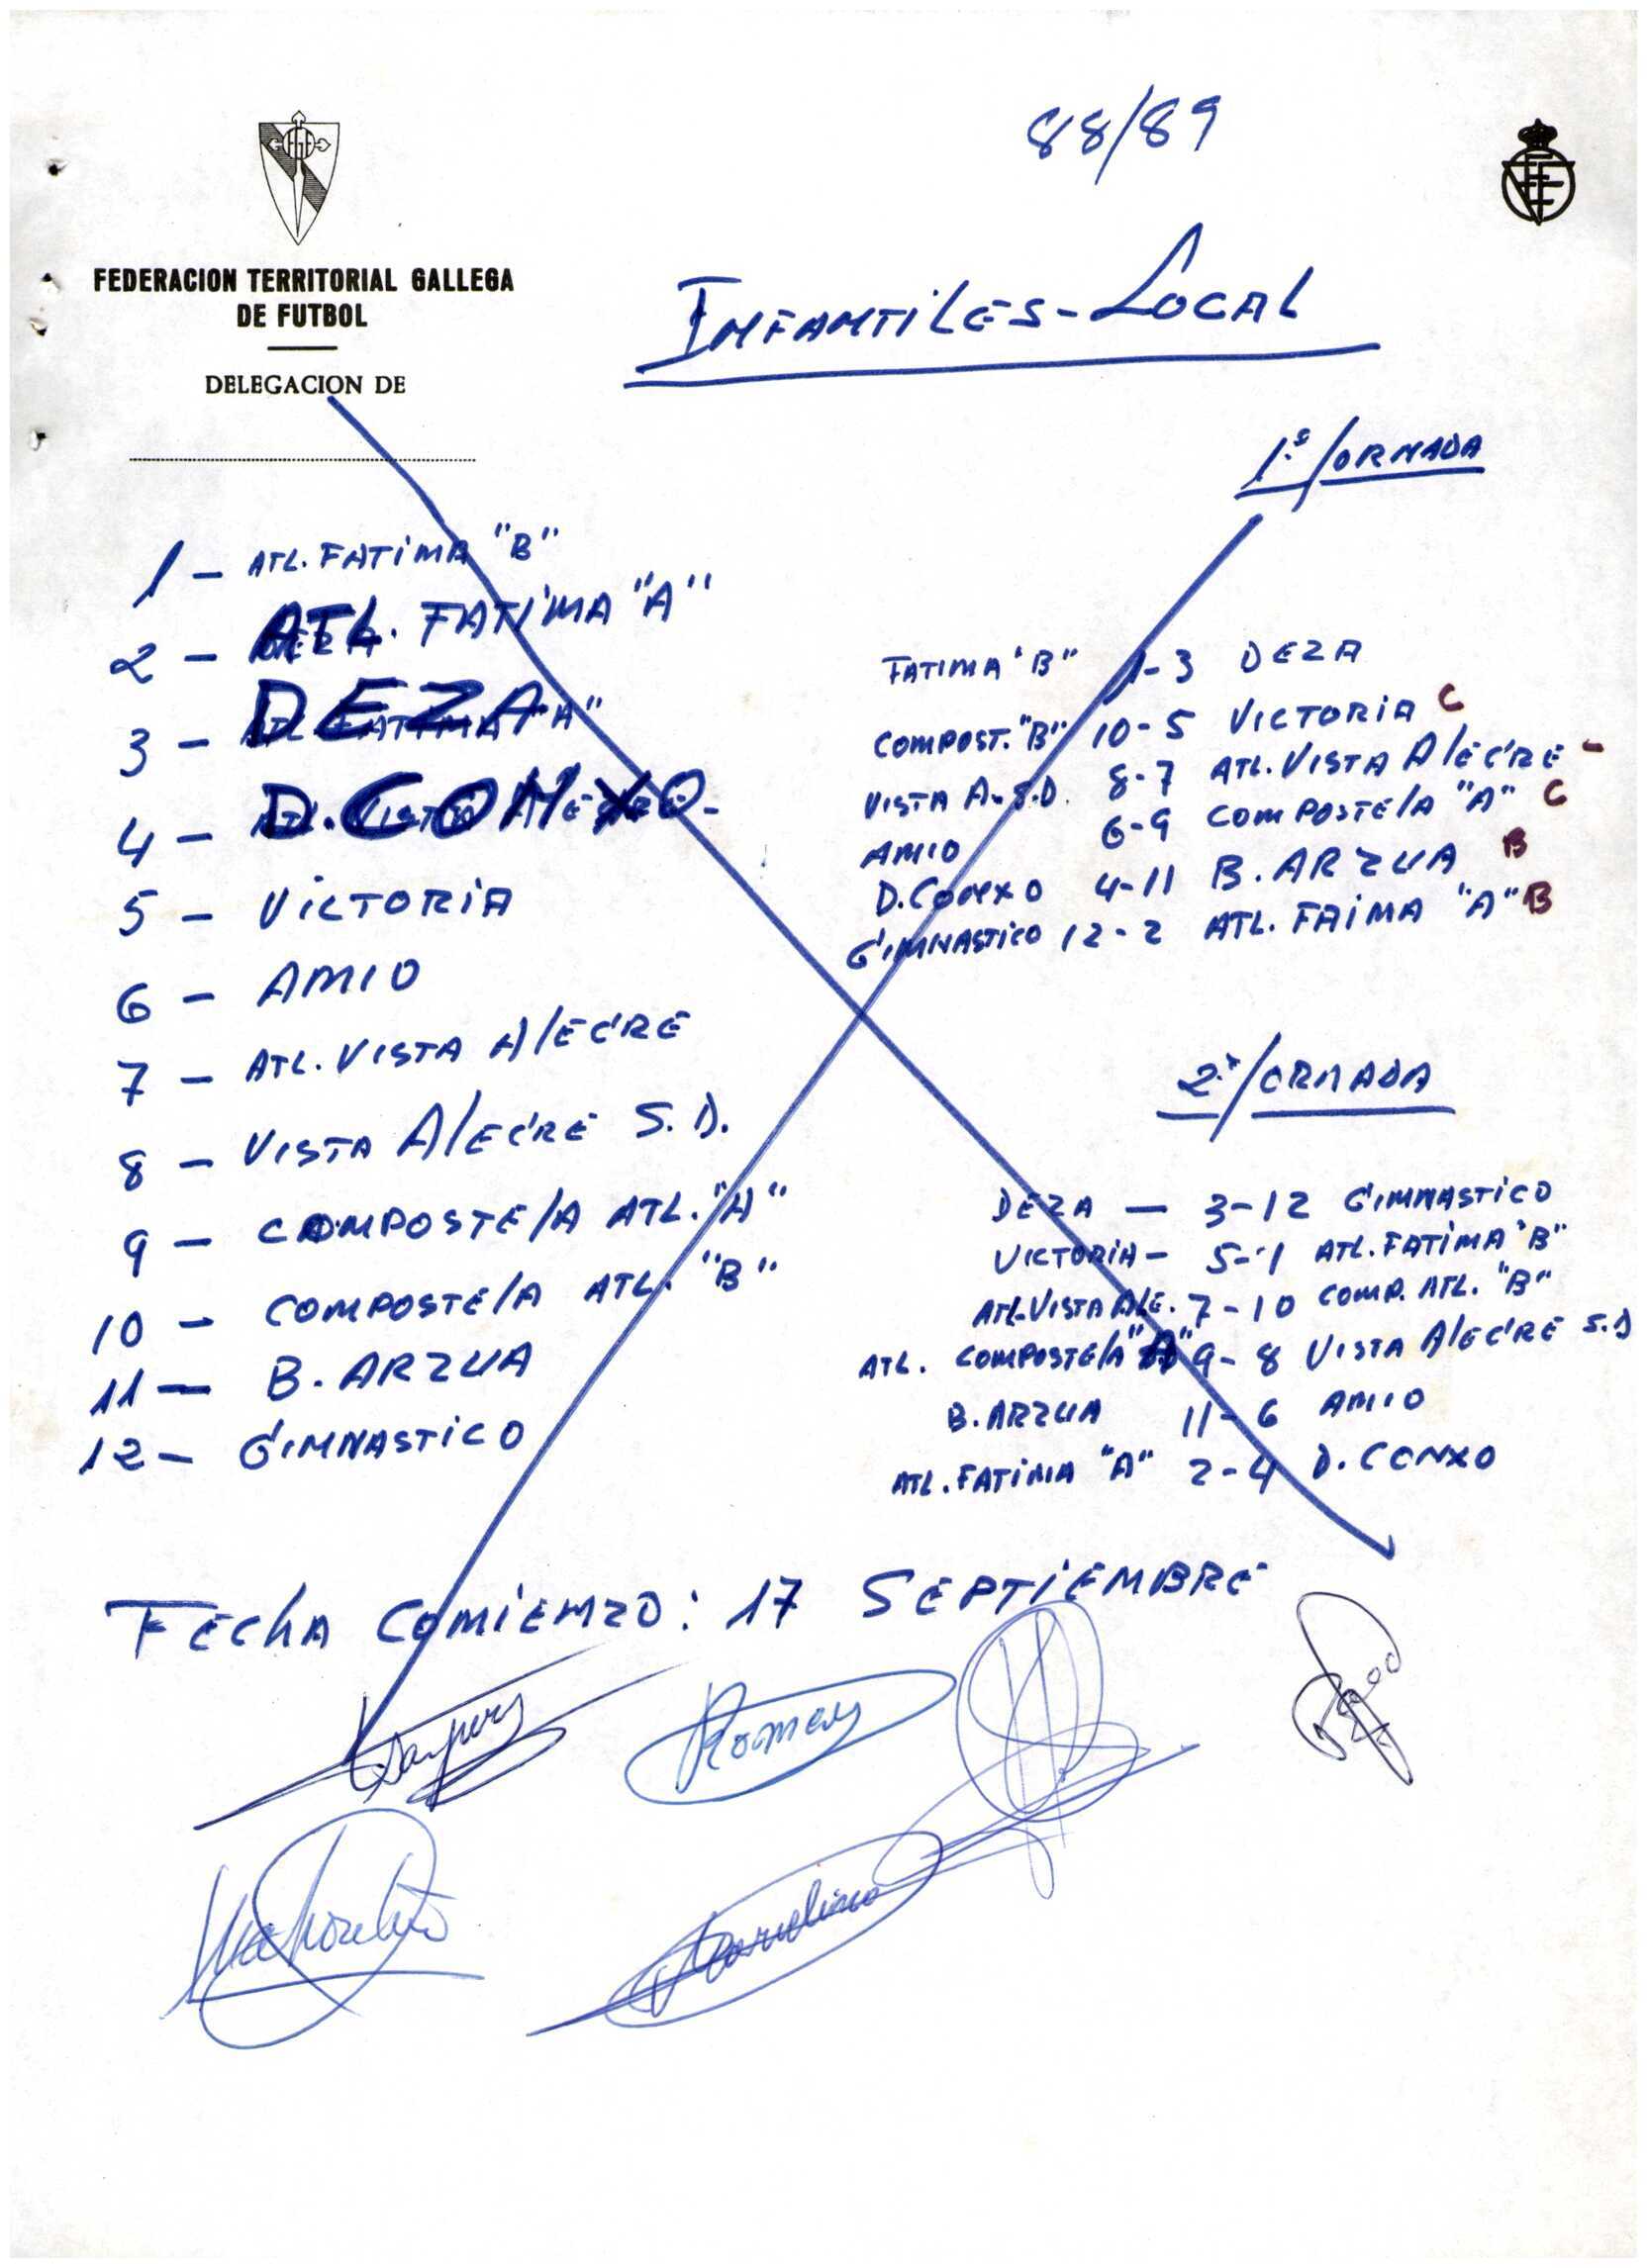 88/89
FEDERACION TERRITORIAL GALLEGA
DE FUTBOL
DELEGACION DE
INFANTILES-LOCAL
1ª JORNADA
1 - ATL. FATIMA "B"
2 - ATL. FATIMA "A"
3 - DEZA
4 - D. CONXO
5 - VICTORIA
6 - AMIO
7 - ATL. VISTA ALEGRE
8 - VISTA ALEGRE S.D.
9 - COMPOSTELA ATL. "A"
10 - COMPOSTELA ATL. "B"
11 - B. ARZUA
12 - GIMNASTICO
FATIMA "B" 1-3 DEZA
COMPOST. "B" 10-5 VICTORIA C
VISTA A. S.D. 8-7 ATL. VISTA ALEGRE -
AMIO 6-9 COMPOSTELA "A" C
D. CONXO 4-11 B. ARZUA B
GIMNASTICO 12-2 ATL. FAIMA "A" B
2ª JORNADA
DEZA - 3-12 GIMNASTICO
VICTORIA - 5-1 ATL. FATIMA "B"
ATL. VISTA ALE. 7-10 COMP. ATL. "B"
ATL. COMPOSTELA "A" 9-8 VISTA ALEGRE S.D
B. ARZUA 11-6 AMIO
ATL. FATIMA "A" 2-4 D. CONXO
FECHA COMIENZO: 17 SEPTIEMBRE